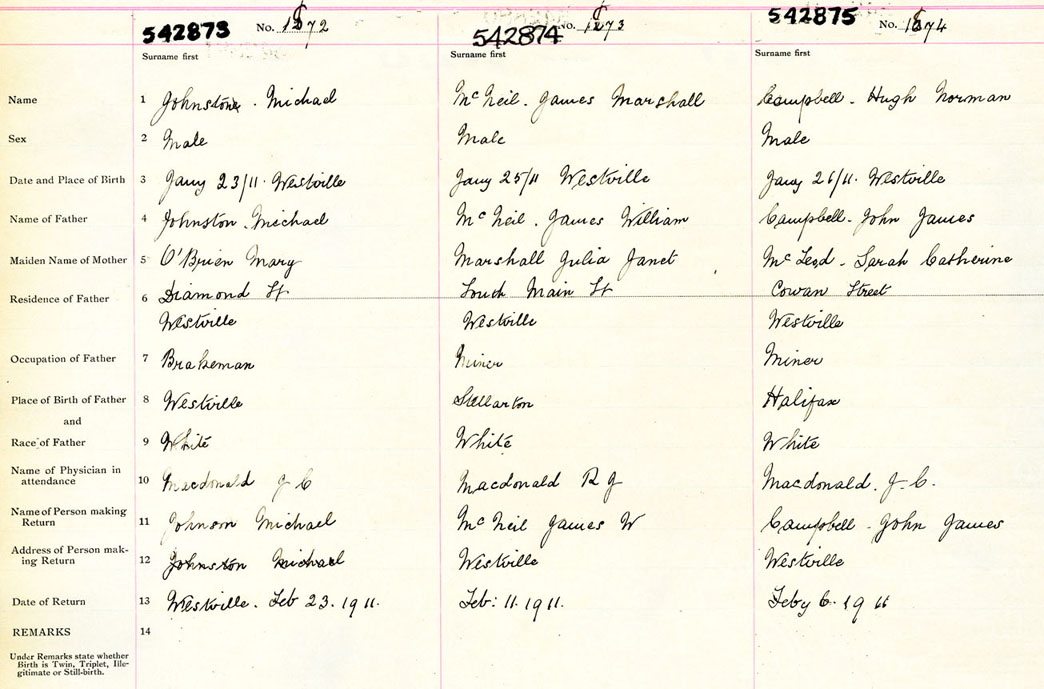 542873 No. 1872 542874 No. 1873 542875 No. 1874
Surname first Surname first Surname first
Name 1 Johnstone. Michael McNeil. James Marshall Campbell - Hugh Norman
Sex 2 Male Male Male
Date and Place of Birth 3 Jany 23/11. Westville Jany 25/11 Westville Jany 26/11. Westville
Name of Father 4 Johnston. Michael McNeil. James William Campbell - John James
Maiden Name of Mother 5 O'Brien Mary Marshall Julia Janet McLeod - Sarah Catherine
Residence of Father 6 Diamond St. South Main St Cowan Street
Westville Westville Westville
Occupation of Father 7 Brakeman Miner Miner
Place of Birth of Father 8 Westville Stellarton Halifax
and
Race of Father 9 White White White
Name of Physician in
attendance 10 Macdonald J C Macdonald R J Macdonald. J. C.
Name of Person making
Return 11 Johnson Michael McNeil James W Campbell - John James
Address of Person mak-
ing Return 12 Johnston Michael Westville Westville
Date of Return 13 Westville. Feb 23. 1911. Feb: 11. 1911. Feby 6. 1911
REMARKS 14
Under Remarks state whether
Birth is Twin, Triplet, Ille-
gitimate or Still-birth.